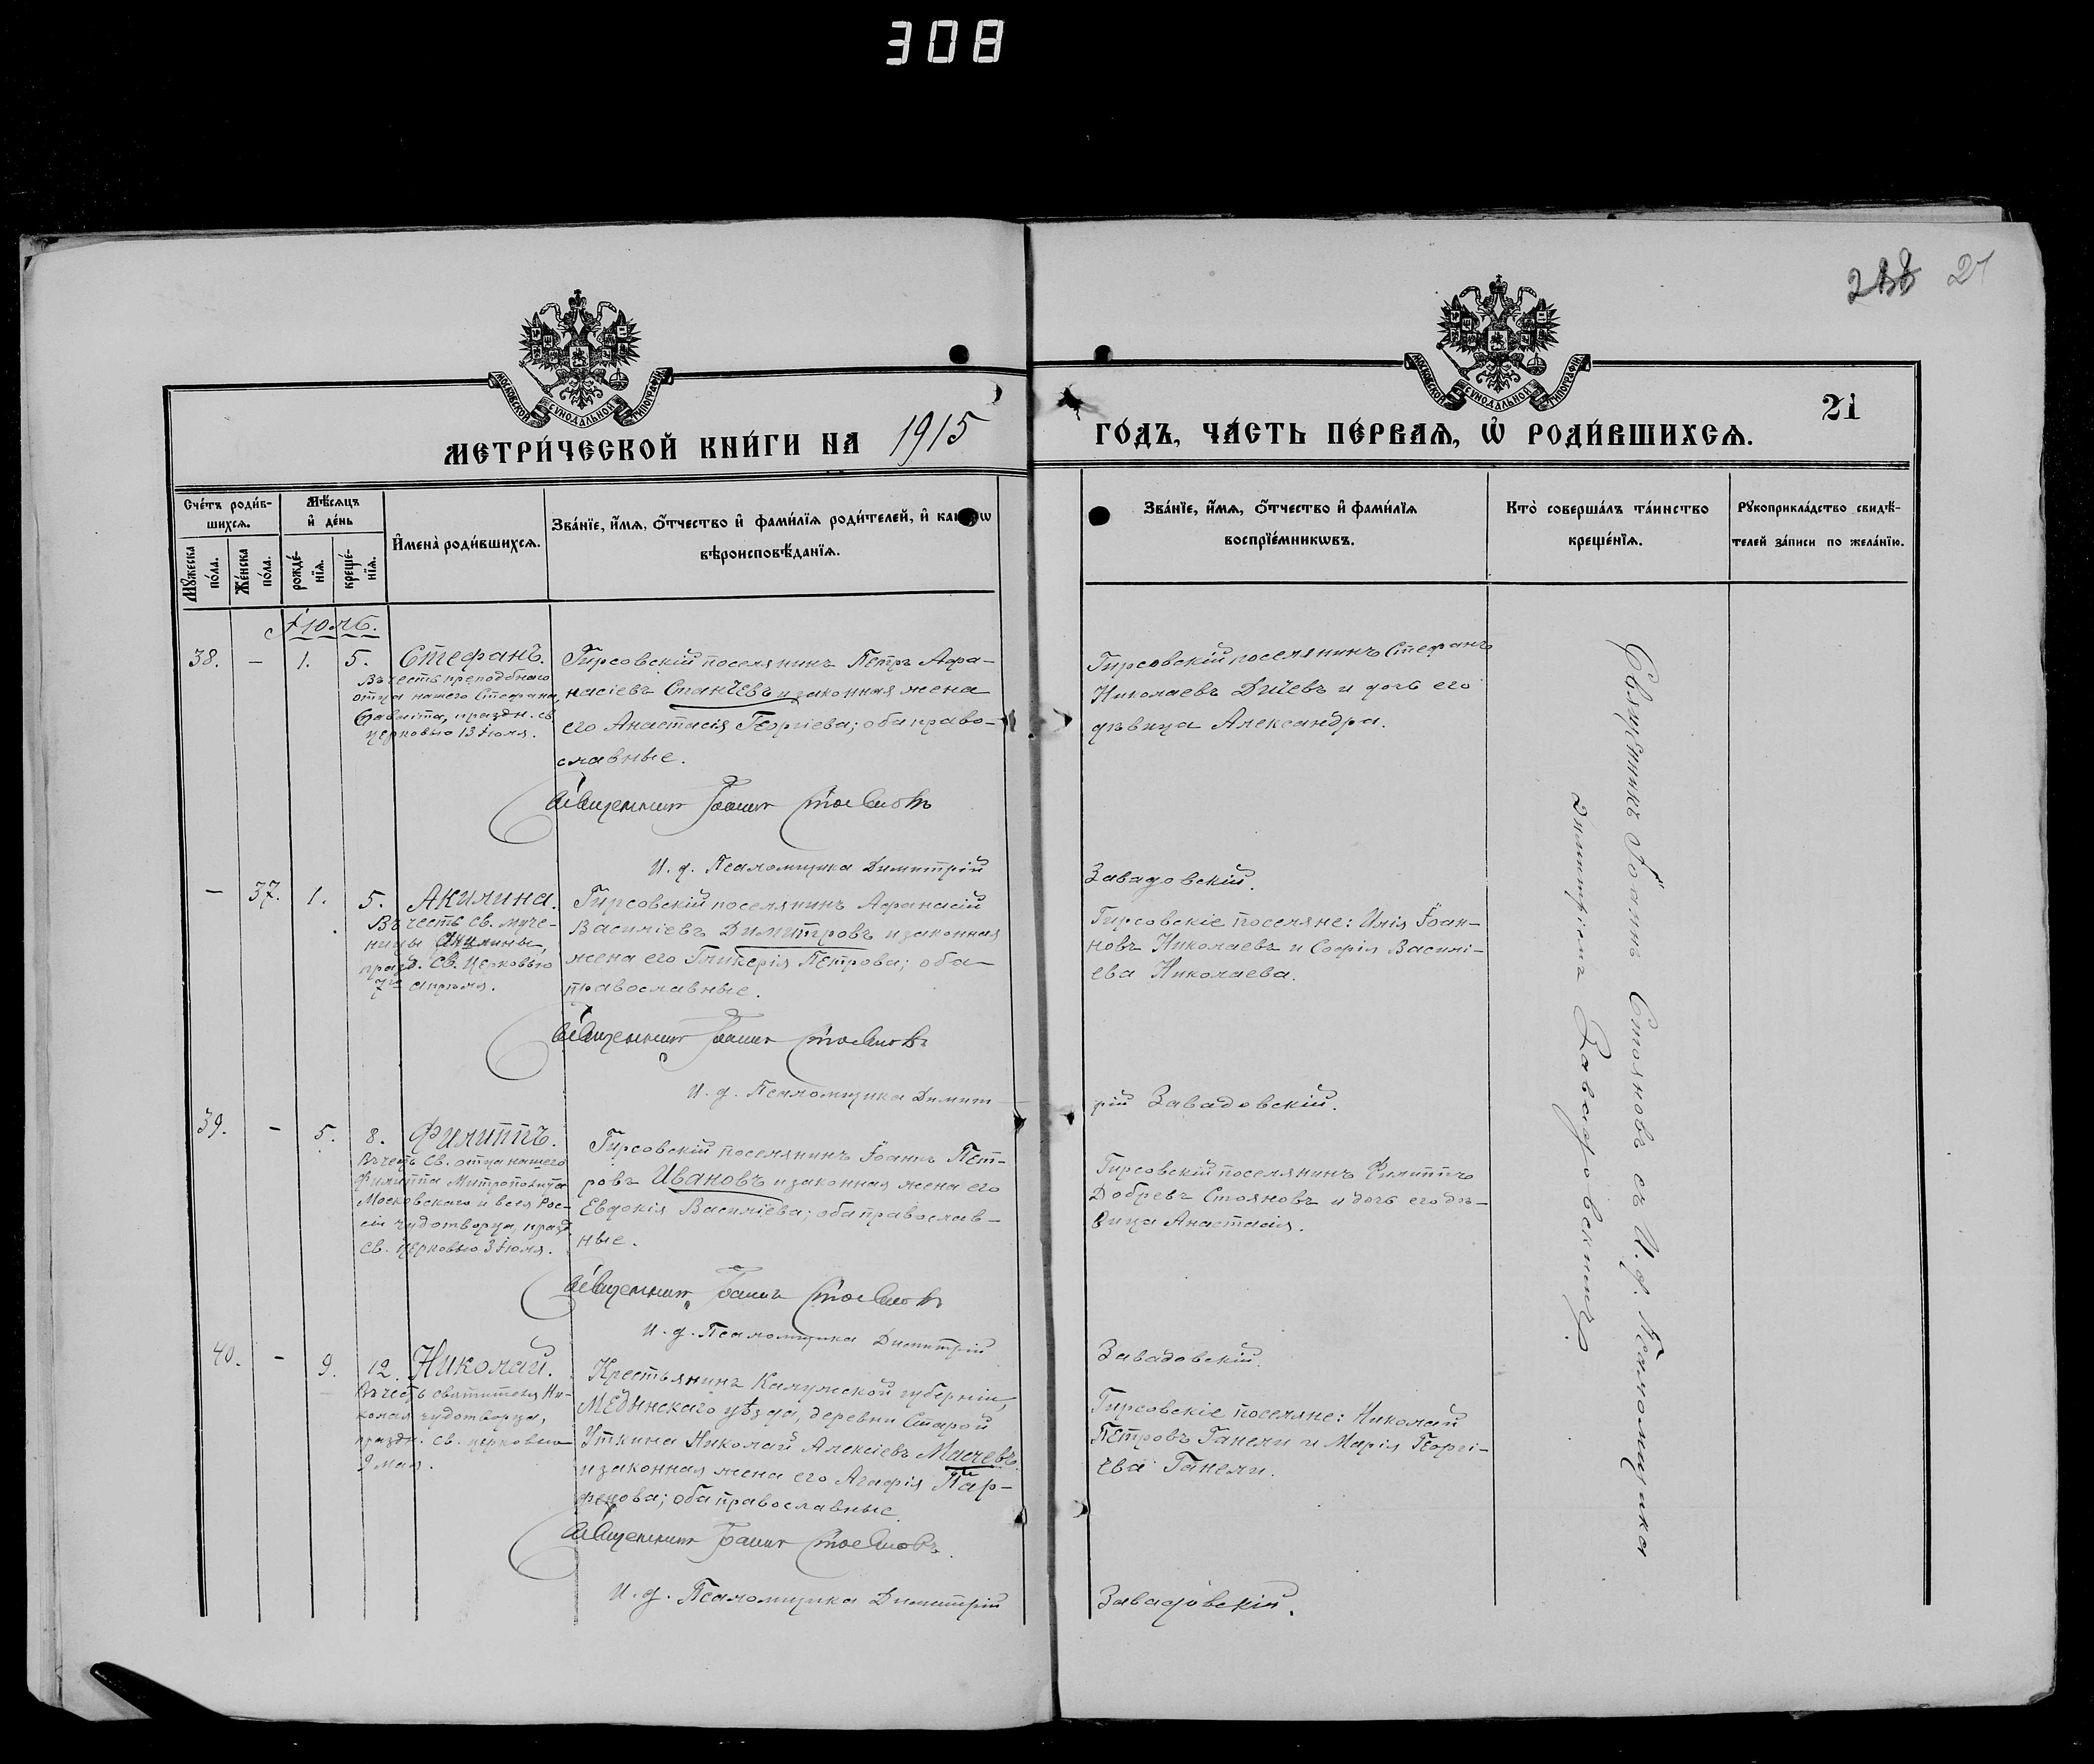 308
288 21
МОСКОВСКОЙ СУНОДАЛЬНОЙ ТИПОГРАФІИ
МОСКОВСКОЙ СУНОДАЛЬНОЙ ТИПОГРАФІИ
21
МЕТРИ́ЧЕСКОЙ КНИ́ГИ НА 1915 ГО́ДЪ, ЧА́СТЬ ПЕ́РВАѦ, Ѡ҆ РОДИ́ВШИХСѦ.
Сче́тъ роди́в-
шихсѧ.
Мѣ́сѧцъ
и҆ де́нь
Мꙋ́жеска
по́ла.
Же́нска
по́ла.
рожде́-
нїѧ.
креще́-
нїѧ.
И҆мена̀ роди́вшихсѧ.
Зва́нїе, и҆́мѧ, ѻ҆́тчество и҆ фами́лїѧ роди́телей, и҆
вѣроисповѣ́данїѧ.
Зва́нїе, и҆́мѧ, ѻ҆́тчество и҆ фами́лїѧ
воспрїе́мникѡвъ.
Кто̀ соверша́лъ та́инство
креще́нїѧ.
Рꙋкоприкла́дство свидѣ́-
телей за́писи по жела́нїю.
Іюль.
38. — 1. 5. Стефанъ.
Въ честь преподобнаго
отца нашего Стефана,
Савваита, праздн. св.
церковью 13 Іюля.
Гирсовскій поселянинъ Петръ Афа-
насіевъ Станчевъ и законная жена
его Анастасія Георгіева; оба право-
славные.
Священникъ Іоаннъ Стояновъ
И. д. Псаломщика Димитрій
Гирсовскій поселянинъ Стефанъ
Николаевъ Дичевъ и дочь его
дѣвица Александра.
Завадовскій.
— 37. 1. 5. Акилина.
Въ честь св. муче-
ницы Акилины,
празд. св. церковью
7го апрѣля.
Гирсовскій поселянинъ Афанасій
Василіевъ Димитровъ и законная
жена его Гликерія Петрова; оба
православные.
Священникъ Іоаннъ Стояновъ
И. д. Псаломщика Димит-
Гирсовскіе поселяне: Илія Іоан-
новъ Николаевъ и Софія Василі-
ева Николаева.
рій Завадовскій.
39. — 5. 8. Филиппъ.
Въ честь св. отца нашего
Филиппа Митрополита
Московскаго и всея Рос-
сіи чудотворца, празд.
св. церковью 3 Іюля.
Гирсовскій поселянинъ Іоаннъ Пет-
ровъ Ивановъ и законная жена его
Евдокія Василіева; оба православ-
ные.
Священникъ Іоаннъ Стояновъ
И. д. Псаломщика Димитрій
Гирсовскій поселянинъ Филиппъ
Добревъ Стояновъ и дочь его дѣ-
вица Анастасія.
Завадовскій.
40. — 9. 12. Николай.
Въ честь святителя Ни-
колая чудотворца,
праздн. св. церковью
9 мая.
Крестьянинъ Калужской губерніи,
Медынскаго уѣзда, деревни Старой
Уткина Николай Алексіевъ Магевъ
и законная жена его Агафія Пар-
фенова; оба православные.
Священникъ Іоаннъ Стояновъ.
И. д. Псаломщика Димитрій
Гирсовскіе поселяне: Николай
Петровъ Ганели и Марія Георгі-
ева Ганели.
Завадовскій.
Священникъ Іоаннъ Стояновъ съ И. д. Псаломщика
Димитріемъ Завадовскимъ.